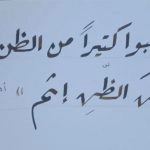 ـبوا كثيراً من الظن
ـن الظنِ إثم